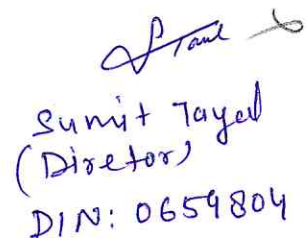 Sumit Tayal
(Diretor)
DIN: 0659804